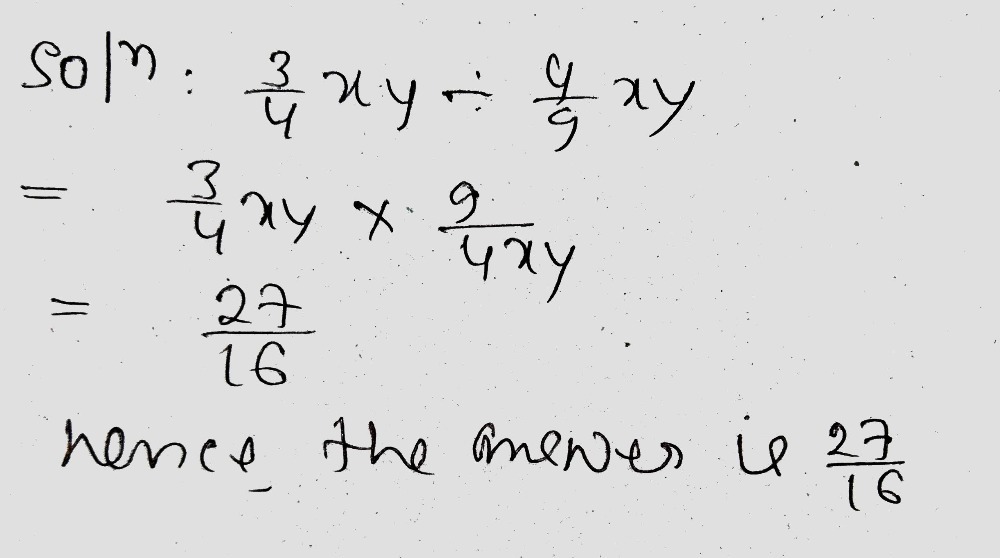 Soln: 3/4 xy ÷ 4/9 xy
= 3/4 xy × 9/4xy
= 27/16
hence the answer is 27/16